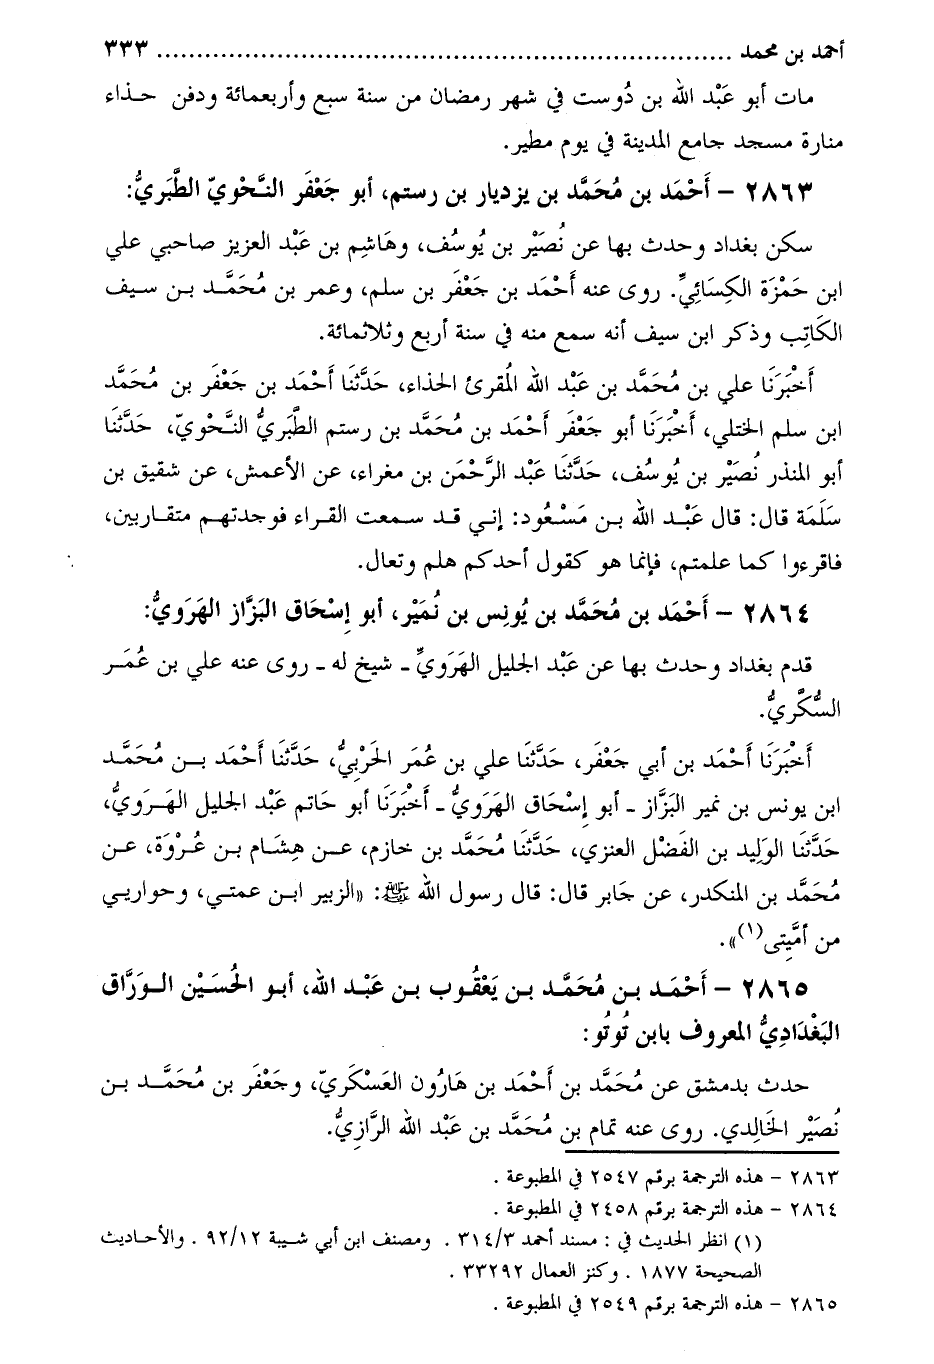 أحمد بن محمد ........................................................................ ٣٣٣
مات أبو عَبْد الله بن دُوست في شهر رمضان من سنة سبع وأربعمائة ودفن حذاء
منارة مسجد جامع المدينة في يوم مطير.
٢٨٦٣ - أَحْمَد بن مُحَمَّد بن يزديار بن رستم، أبو جَعْفَر النَّحْويّ الطَّبَريُّ:
سكن بغداد وحدث بها عن نُصَيْر بن يُوسُف، وهَاشِم بن عَبْد العزيز صاحبي علي
ابن حَمْزَة الكِسَائِيِّ. روى عنه أَحْمَد بن جَعْفَر بن سلم، وعمر بن مُحَمَّد بن سيف
الكَاتِب وذكر ابن سيف أنه سمع منه في سنة أربع وثلاثمائة.
أَخْبَرَنَا علي بن مُحَمَّد بن عَبْد الله المُقرئ الحذاء، حَدَّثَنَا أَحْمَد بن جَعْفَر بن مُحَمَّد
ابن سلم الختلي، أَخْبَرَنَا أبو جَعْفَر أَحْمَد بن مُحَمَّد بن رستم الطَّبَريُّ النَّحْويّ، حَدَّثَنَا
أبو المنذر نُصَيْر بن يُوسُف، حَدَّثَنَا عَبْد الرَّحْمَن بن مغراء، عن الأعمش، عن شقيق بن
سَلَمَة قال: قال عَبْد الله بن مَسْعُود: إني قد سمعت القراء فوجدتهم متقاربين،
فاقرءوا كما علمتم، فإنما هو كقول أحدكم هلم وتعال.
٢٨٦٤ - أَحْمَد بن مُحَمَّد بن يُونِس بن نُمَيْر، أبو إسْحَاق البَزَّاز الهَرَويُّ:
قدم بغداد وحدث بها عن عَبْد الجليل الهَرَويِّ - شيخ له - روى عنه علي بن عُمَر
السُّكَّريُّ.
أَخْبَرَنَا أَحْمَد بن أبي جَعْفَر، حَدَّثَنَا علي بن عُمَر الحَرْبيُّ، حَدَّثَنَا أَحْمَد بن مُحَمَّد
ابن يونس بن نمير البَزَّاز - أبو إسْحَاق الهَرَويُّ - أَخْبَرَنَا أبو حَاتم عَبْد الجليل الهَرَويُّ،
حَدَّثَنَا الوَلِيد بن الفَضْل العنزي، حَدَّثَنَا مُحَمَّد بن خازم، عن هِشَام بن عُرْوَة، عن
مُحَمَّد بن المنكدر، عن جَابر قال: قال رسول الله ﷺ: «الزبير ابن عمتي، وحواريي
من أمَّتِي(١)».
٢٨٦٥ - أَحْمَد بن مُحَمَّد بن يَعْقُوب بن عَبْد الله، أبو الحُسَيْن الورَّاق
البَغْدَادِيُّ المعروف بابن تُوتُو:
حدث بدمشق عن مُحَمَّد بن أَحْمَد بن هَارُون العَسْكَريّ، وجَعْفَر بن مُحَمَّد بن
نُصَيْر الخَالِدي. روى عنه تمام بن مُحَمَّد بن عَبْد الله الرَّازِيُّ.
٢٨٦٣ - هذه الترجمة برقم ٢٥٤٧ في المطبوعة .
٢٨٦٤ - هذه الترجمة برقم ٢٤٥٨ في المطبوعة .
(١) انظر الحديث في : مسند أحمد ٣١٤/٣ . ومصنف ابن أبي شيبة ٩٢/١٢ . والأحاديث
الصحيحة ١٨٧٧ . وكنز العمال ٣٣٢٩٢ .
٢٨٦٥ - هذه الترجمة برقم ٢٥٤٩ في المطبوعة .